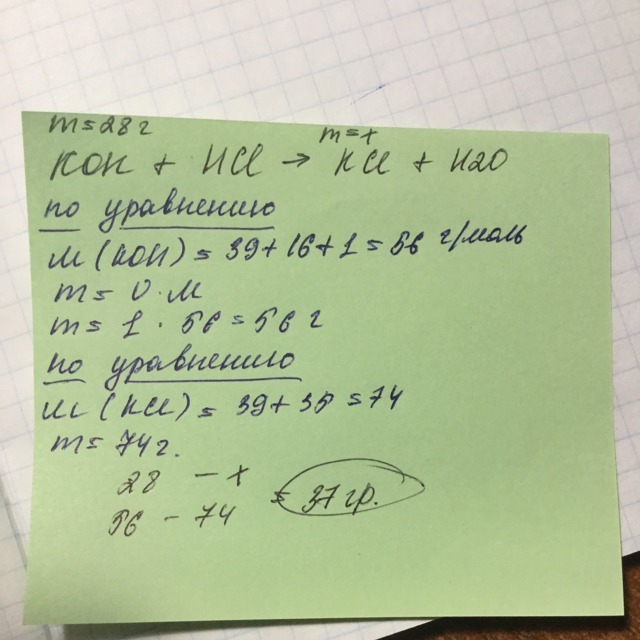 m=28г m=x
KOH + HCl → KCl + H2O
по уравнению
M(KOH) = 39+16+1=56 г/моль
m= ν·M
m= 1 · 56=56 г
по уравнению
M(KCl) = 39+35 =74
m= 74г.
28 – x
56 – 74 = 37гр.